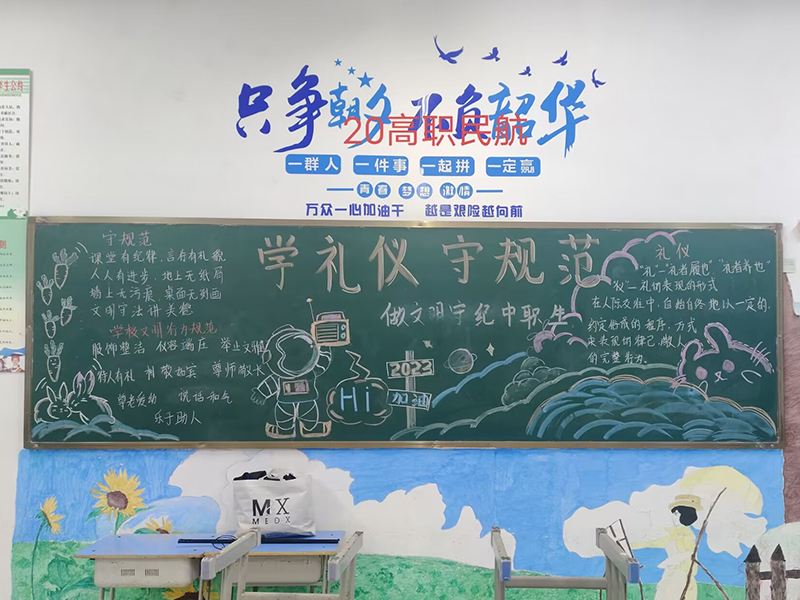 只争朝夕 不负韶华
20高职民航
一群人 一件事 一起拼 一定赢
青春 梦想 激情
万众一心加油干 越是艰险越向前
学礼仪 守规范
做文明守纪中职生
守规范
课堂有纪律,言而有礼貌
人人有进步,地上无纸屑
墙上无污痕 桌面无刻画
文明守法讲美德
学校文明有序规范
服饰整洁 仪容端庄 举止文雅
待人有礼 尊师敬长
尊老爱幼 说话和气
乐于助人
2022
加油
Hi
礼仪
"礼"一"礼者履也" "礼者养也"
"仪"一礼切表现的形式
在人际交往中,自始自终地以一定的,
约定俗成的程序,方式
来表现的律己,敬人
的完整行为.
MX
MEOX